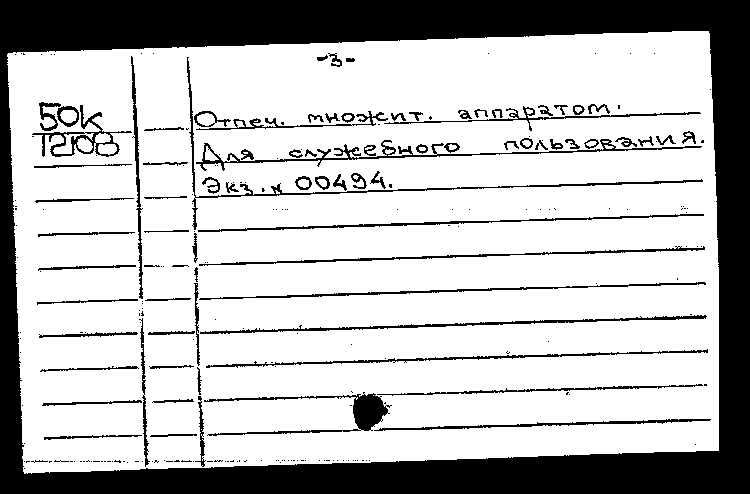 -3-
50к
12108
Отпеч. множит. аппаратом.
Для служебного пользования.
Экз. N 00494.